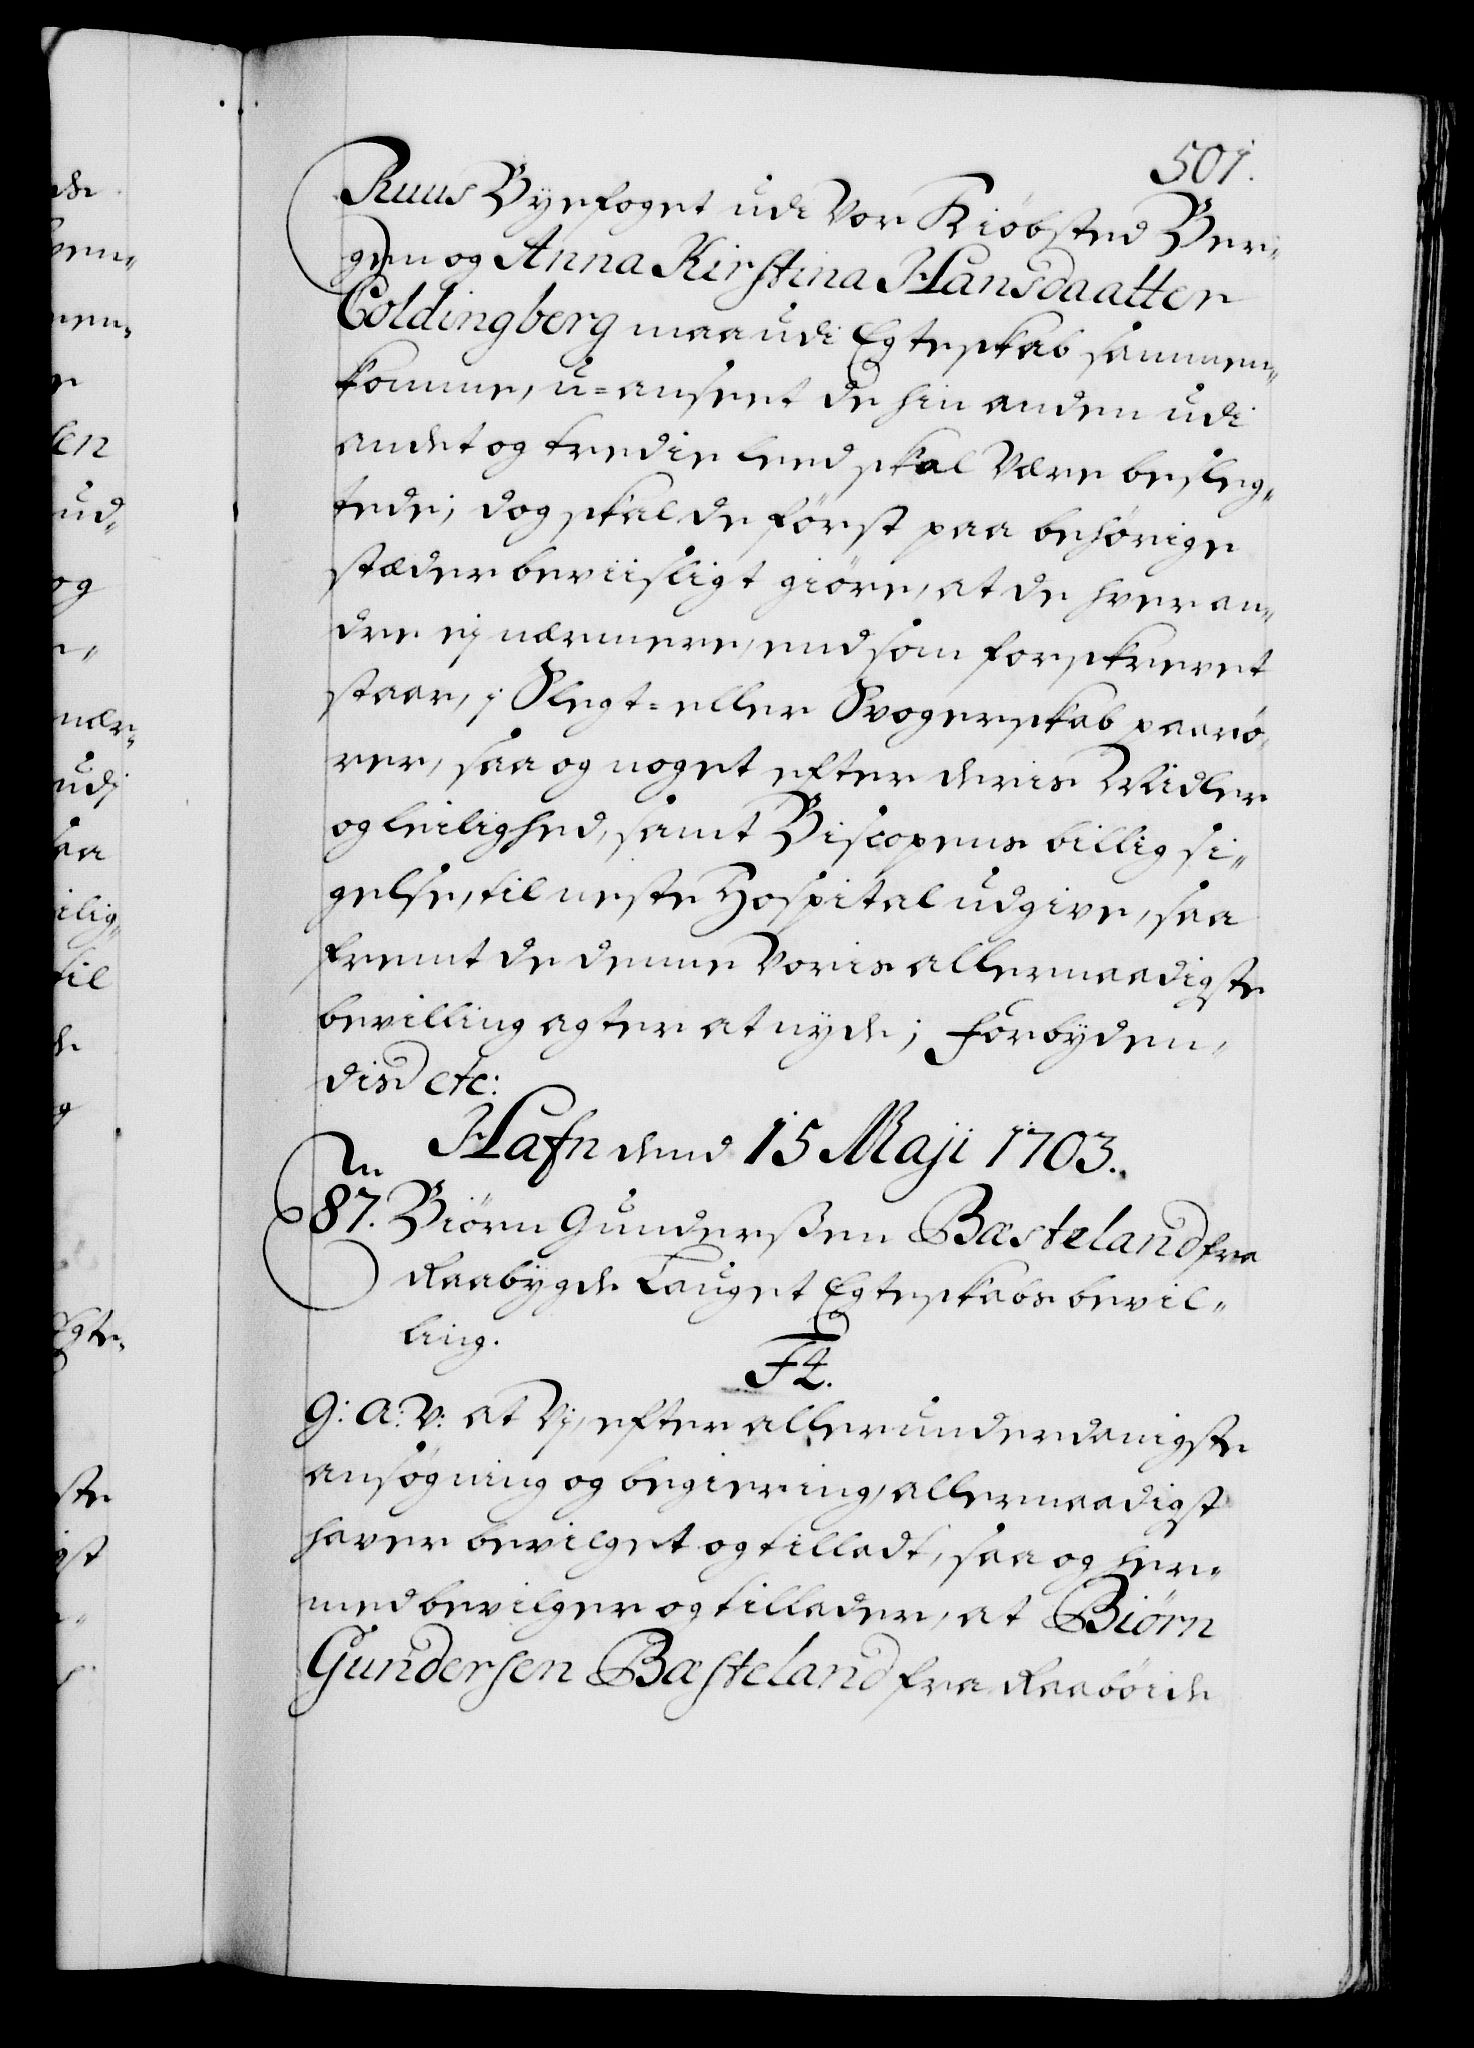 501.
Ruus Byefoget udi Vor Kiöbsted Ber-
gen og Anna Kirstina Hansdaatter
Coldingberg maa udi Egteskab sammen-
komme, u-anseet de hin anden udi
andet og tredie leed skal være besleg-
tede; dog skal de först paa behörige
stæder beviisligt giöre, at de hver an-
dre ej nærmere, end som forskrevet
staar, i Slegt- eller Svogerskab paarö-
rer, saa og noget efter deris Midler
og leilighed, samt Biscopens billig si-
gelse, til neste Hospital udgive, saa
fremt de denne Voris allernaadigste
bevilling agter at nyde; Forbyden-
dis etc:
Hafn dend 15 Maji 1703.
87. Biörn Gunderßen Bæsteland fra
Raabygde Lauget Egteskabs bevil-
ling.
F4.
G: A: V: at Vj, efter allerunderdanigste
ansögning og begiering, allernaadigst
haver bevilget og tilladt, saa og her-
med bevilger og tillader, at Biörn
Gundersen Bæsteland fra Raaböide